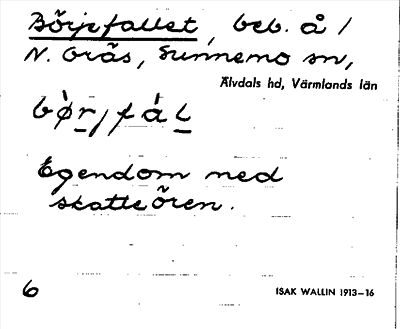 Börjefallet, beb. å /
N. Gräs, Sunnemo sn,
Älvdals hd, Värmlands län
Egendom med
skatteören.
6 ISAK WALLIN 1913–16